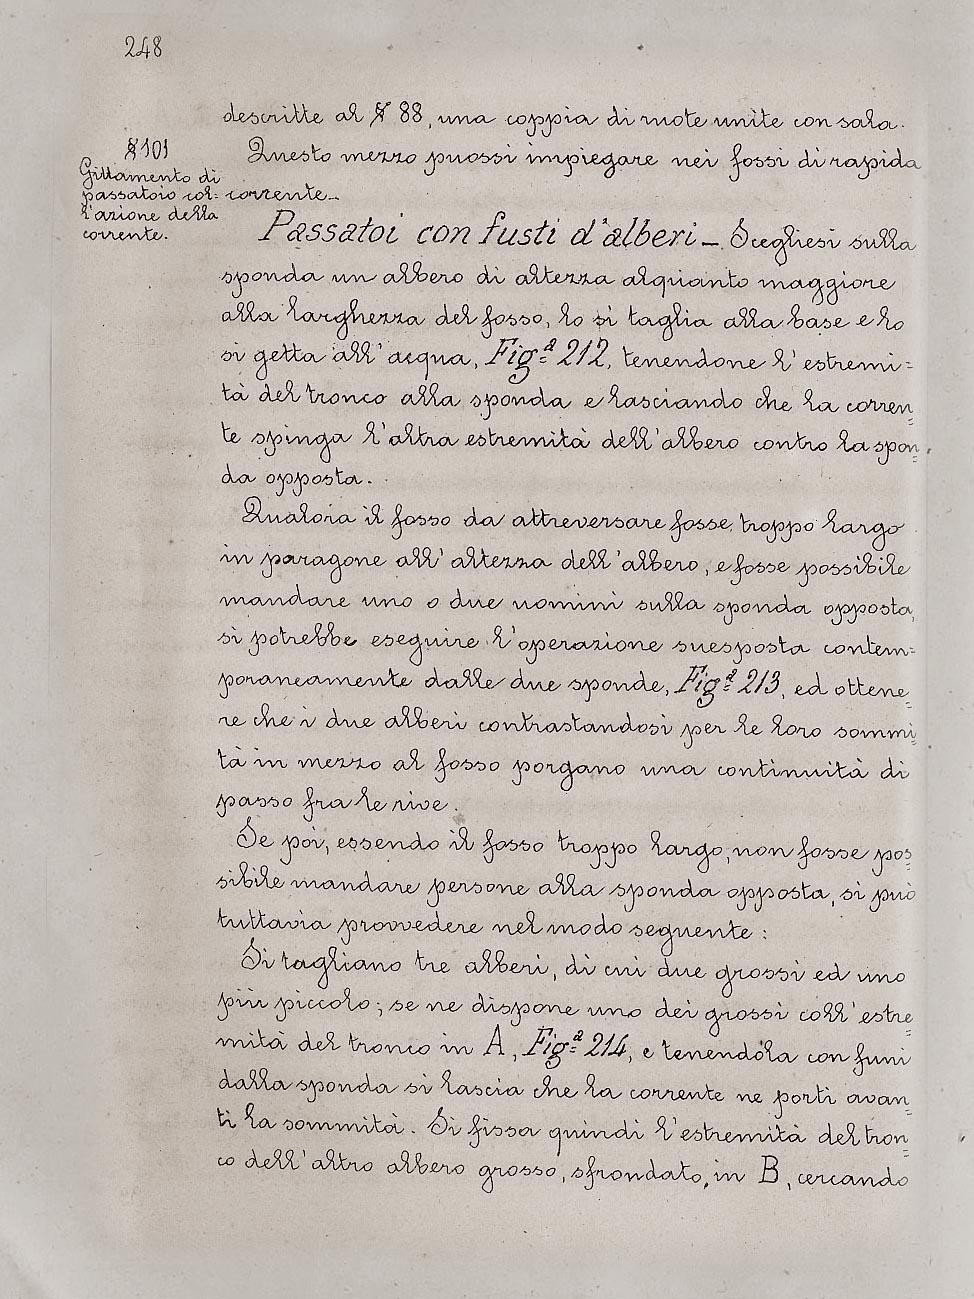 248
descritte al § 88, una coppia di ruote unite con sala.
Questo mezzo puossi impiegare nei fossi di rapida
corrente._
§ 101
Gittamento di
passatoio col=
l'azione della
corrente.
Passatoi con fusti d'alberi _ Scegliesi sulla
sponda un albero di altezza alquanto maggiore
alla larghezza del fosso, lo si taglia alla base e lo
si getta all'acqua, Fig.ª 212, tenendone l'estremi=
tà del tronco alla sponda e lasciando che la corren=
te spinga l'altra estremità dell'albero contro la spon=
da opposta.
Qualora il fosso da attreversare fosse troppo largo
in paragone all'altezza dell'albero, e fosse possibile
mandare uno o due uomini sulla sponda opposta,
si potrebbe eseguire l'operazione suesposta contem=
poraneamente dalle due sponde, Fig.ª 213, ed ottene=
re che i due alberi contrastandosi per le loro sommi=
tà in mezzo al fosso porgano una continuità di
passo fra le rive.
Se poi, essendo il fosso troppo largo, non fosse pos=
sibile mandare persone alla sponda opposta, si può
tuttavia provvedere nel modo seguente:
Si tagliano tre alberi, di cui due grossi ed uno
più piccolo; se ne dispone uno dei grossi coll'estre=
mità del tronco in A, Fig.ª 214, e tenendola con funi
dalla sponda si lascia che la corrente ne porti avan=
ti la sommità. Si fissa quindi l'estremità del tron=
co dell'altro albero grosso, sfrondato, in B, cercando